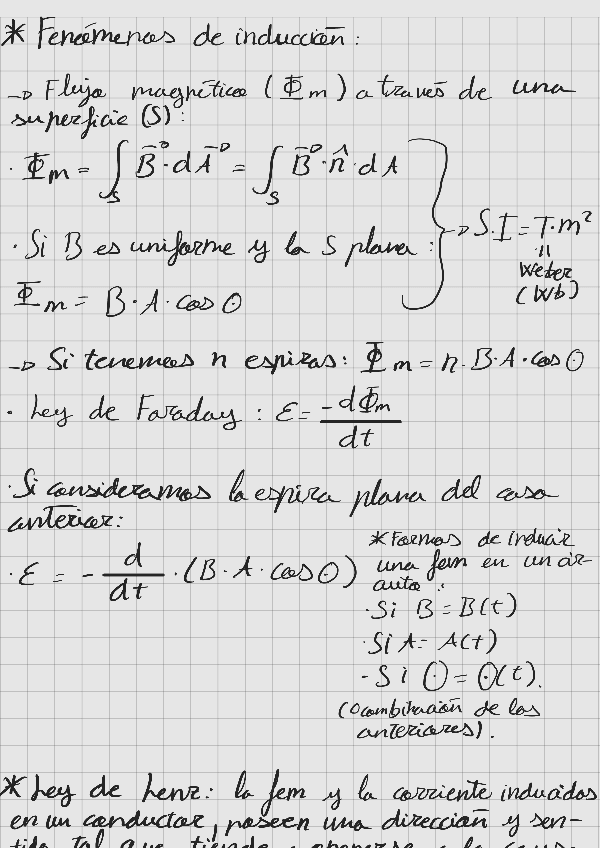 * Fenómenos de inducción:
→ Flujo magnético (Φm) a través de una
superficie (S):
· Φm = ∫S B⃗·dA⃗ = ∫S B⃗·n̂·dA
· Si B es uniforme y la S plana:
Φm = B·A·cos Θ
→ S.I = T·m²
=
Weber
(Wb)
→ Si tenemos n espiras: Φm = n·B·A·cos Θ
· Ley de Faraday: ε = -dΦm/dt
· Si consideramos la espira plana del caso
anterior:
· ε = - d/dt · (B·A·cos Θ)
* Formas de inducir
una fem en un cir-
cuito:
· Si B = B(t)
· Si A = A(t)
- Si Θ = Θ(t).
(O combinación de los
anteriores).
* Ley de Lenz: la fem y la corriente inducidas
en un conductor, poseen una dirección y sen-
tido tal que tiende a oponerse a la